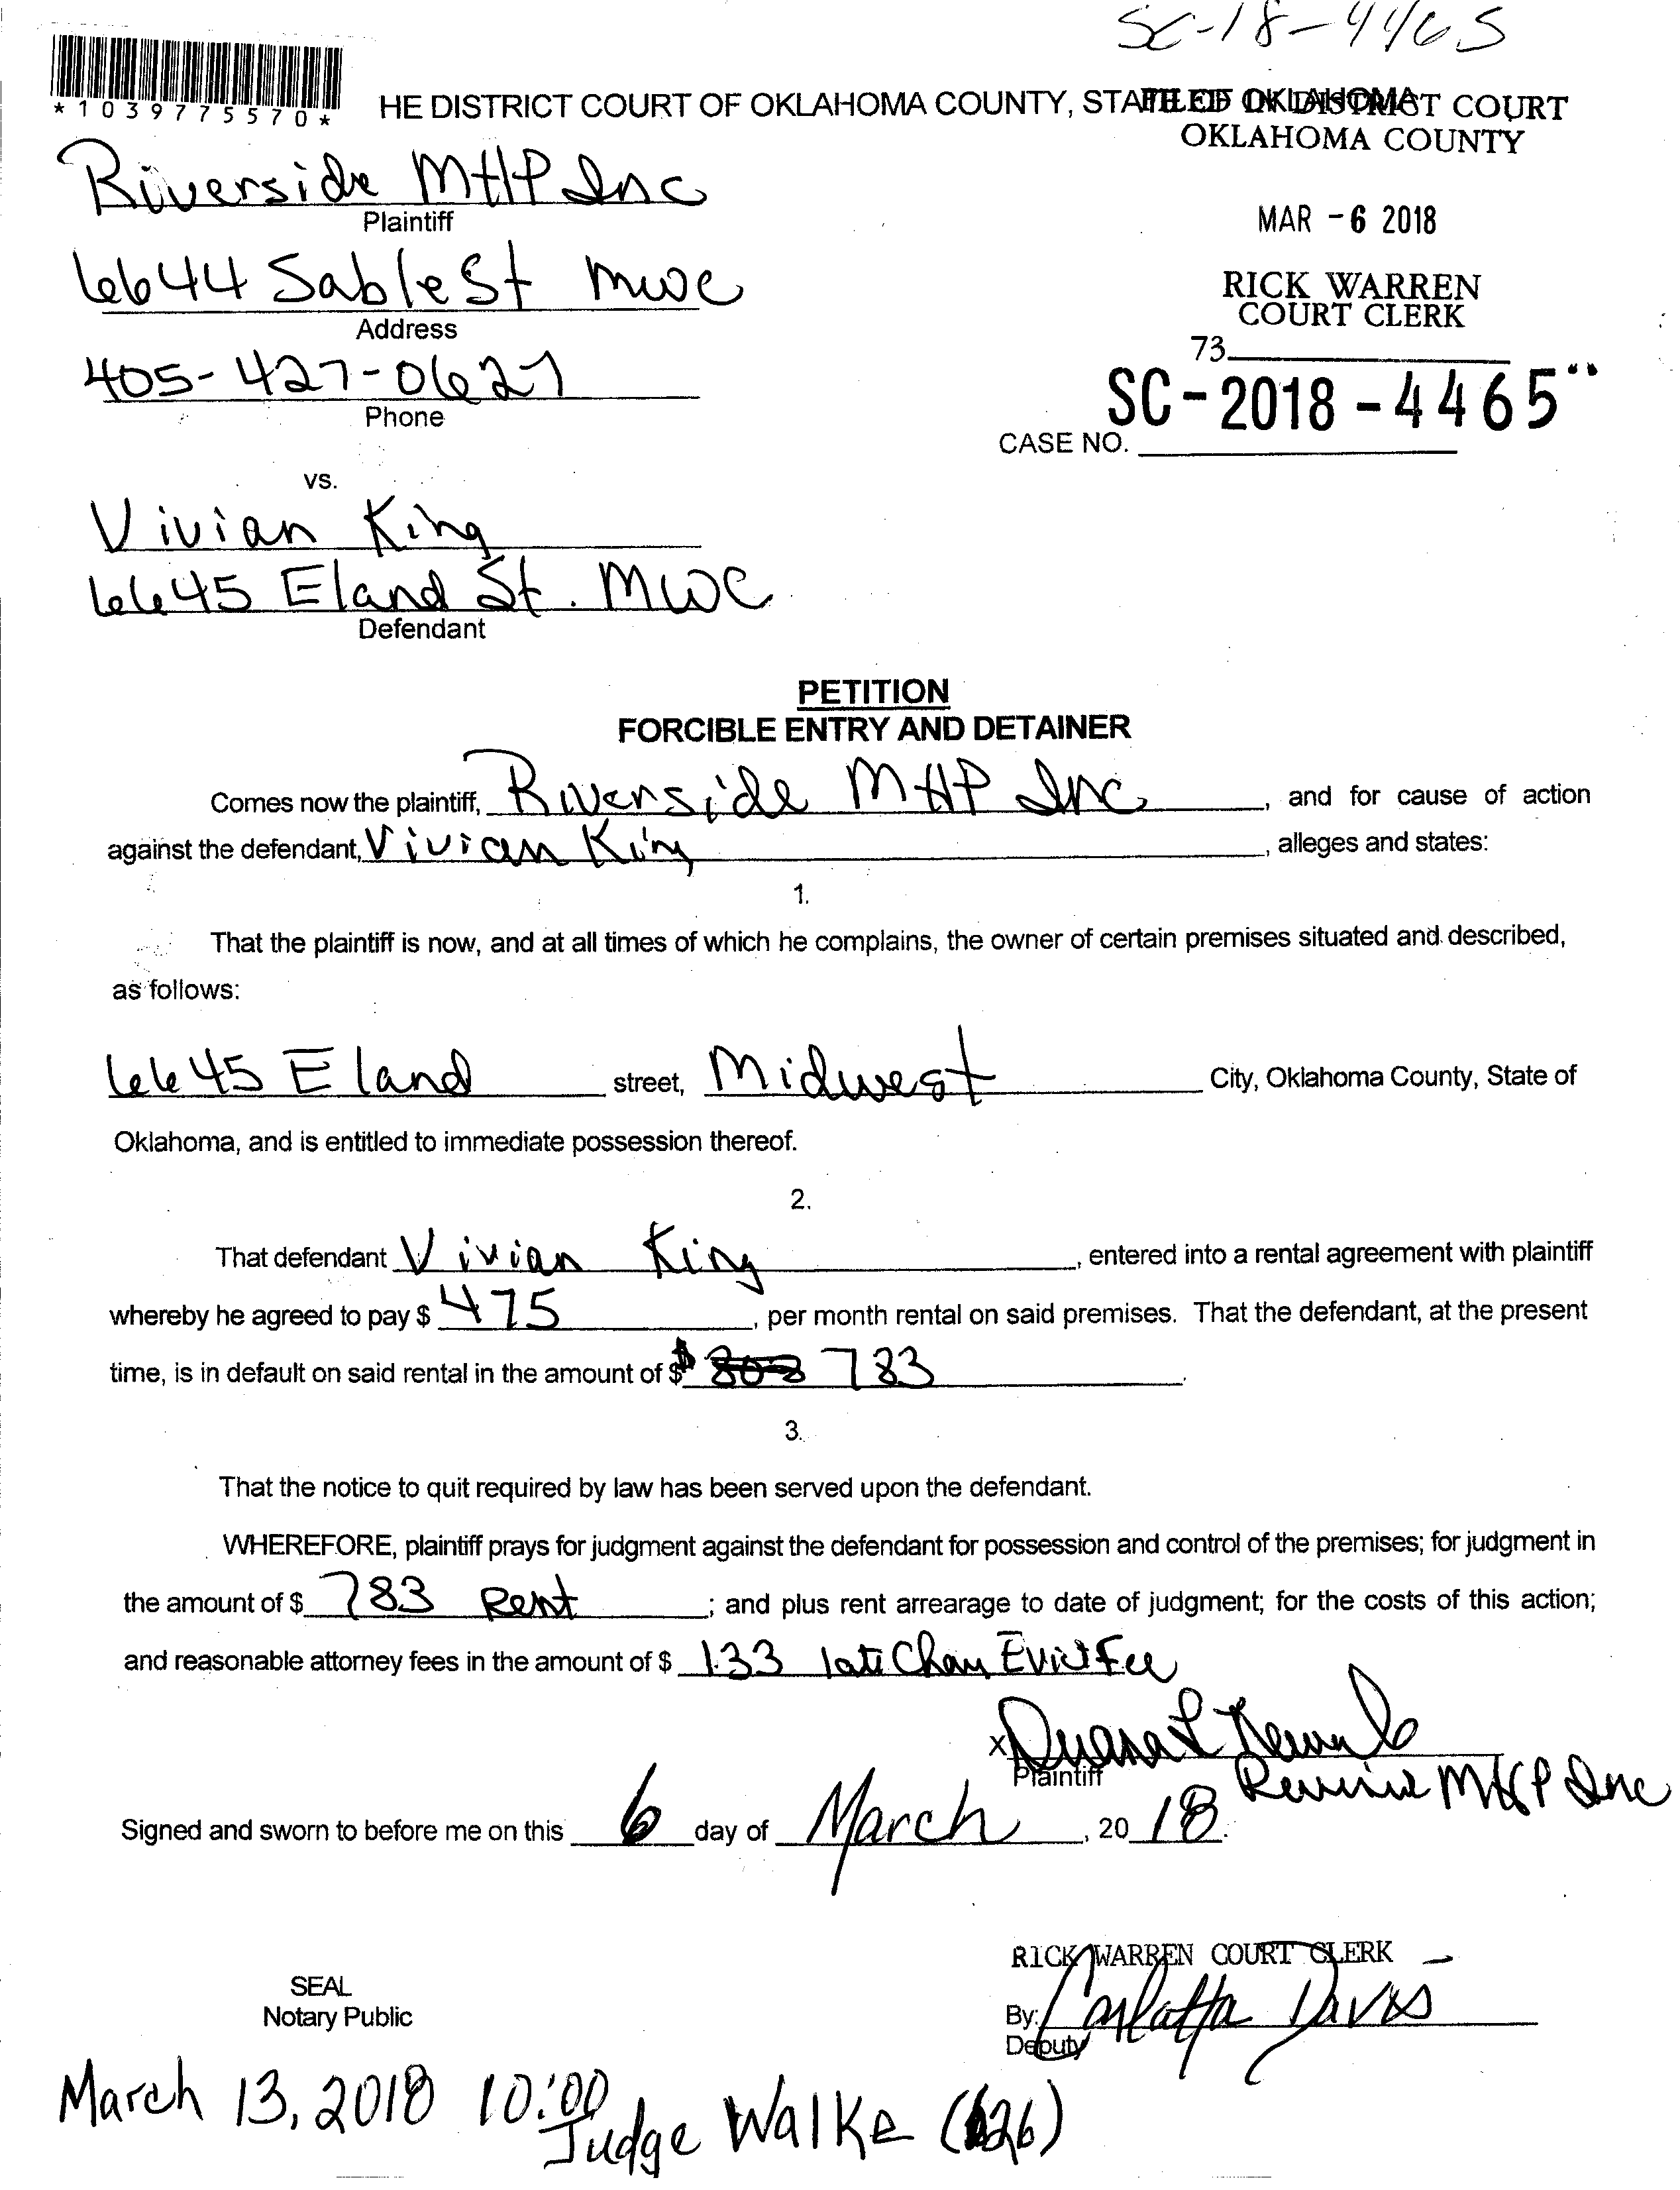 SC-18-4465
*1039775570*
HE DISTRICT COURT OF OKLAHOMA COUNTY, STATE OF OKLAHOMA
FILED IN DISTRICT COURT
OKLAHOMA COUNTY
Riverside MHP Inc
Plaintiff
MAR -6 2018
6644 Sable St MWC
Address
RICK WARREN
COURT CLERK
405-427-0627
Phone
73
SC-2018-4465
CASE NO.
vs.
Vivian King
6645 Eland St. MWC
Defendant
PETITION
FORCIBLE ENTRY AND DETAINER
Comes now the plaintiff, Riverside MHP Inc, and for cause of action
against the defendant, Vivian King, alleges and states:
1.
That the plaintiff is now, and at all times of which he complains, the owner of certain premises situated and described,
as follows:
6645 Eland street, Midwest City, Oklahoma County, State of
Oklahoma, and is entitled to immediate possession thereof.
2.
That defendant Vivian King, entered into a rental agreement with plaintiff
whereby he agreed to pay $ 475, per month rental on said premises. That the defendant, at the present
time, is in default on said rental in the amount of $ $ 783.
3.
That the notice to quit required by law has been served upon the defendant.
WHEREFORE, plaintiff prays for judgment against the defendant for possession and control of the premises; for judgment in
the amount of $ 783 Rent; and plus rent arrearage to date of judgment; for the costs of this action;
and reasonable attorney fees in the amount of $ 133 late Evict Fee
X
Plaintiff
MHP Inc
Signed and sworn to before me on this 6 day of March, 2018.
RICK WARREN COURT CLERK
SEAL
Notary Public
By: Carlatta Davis
Deputy
March 13, 2018 10:00
Judge Walke (626)